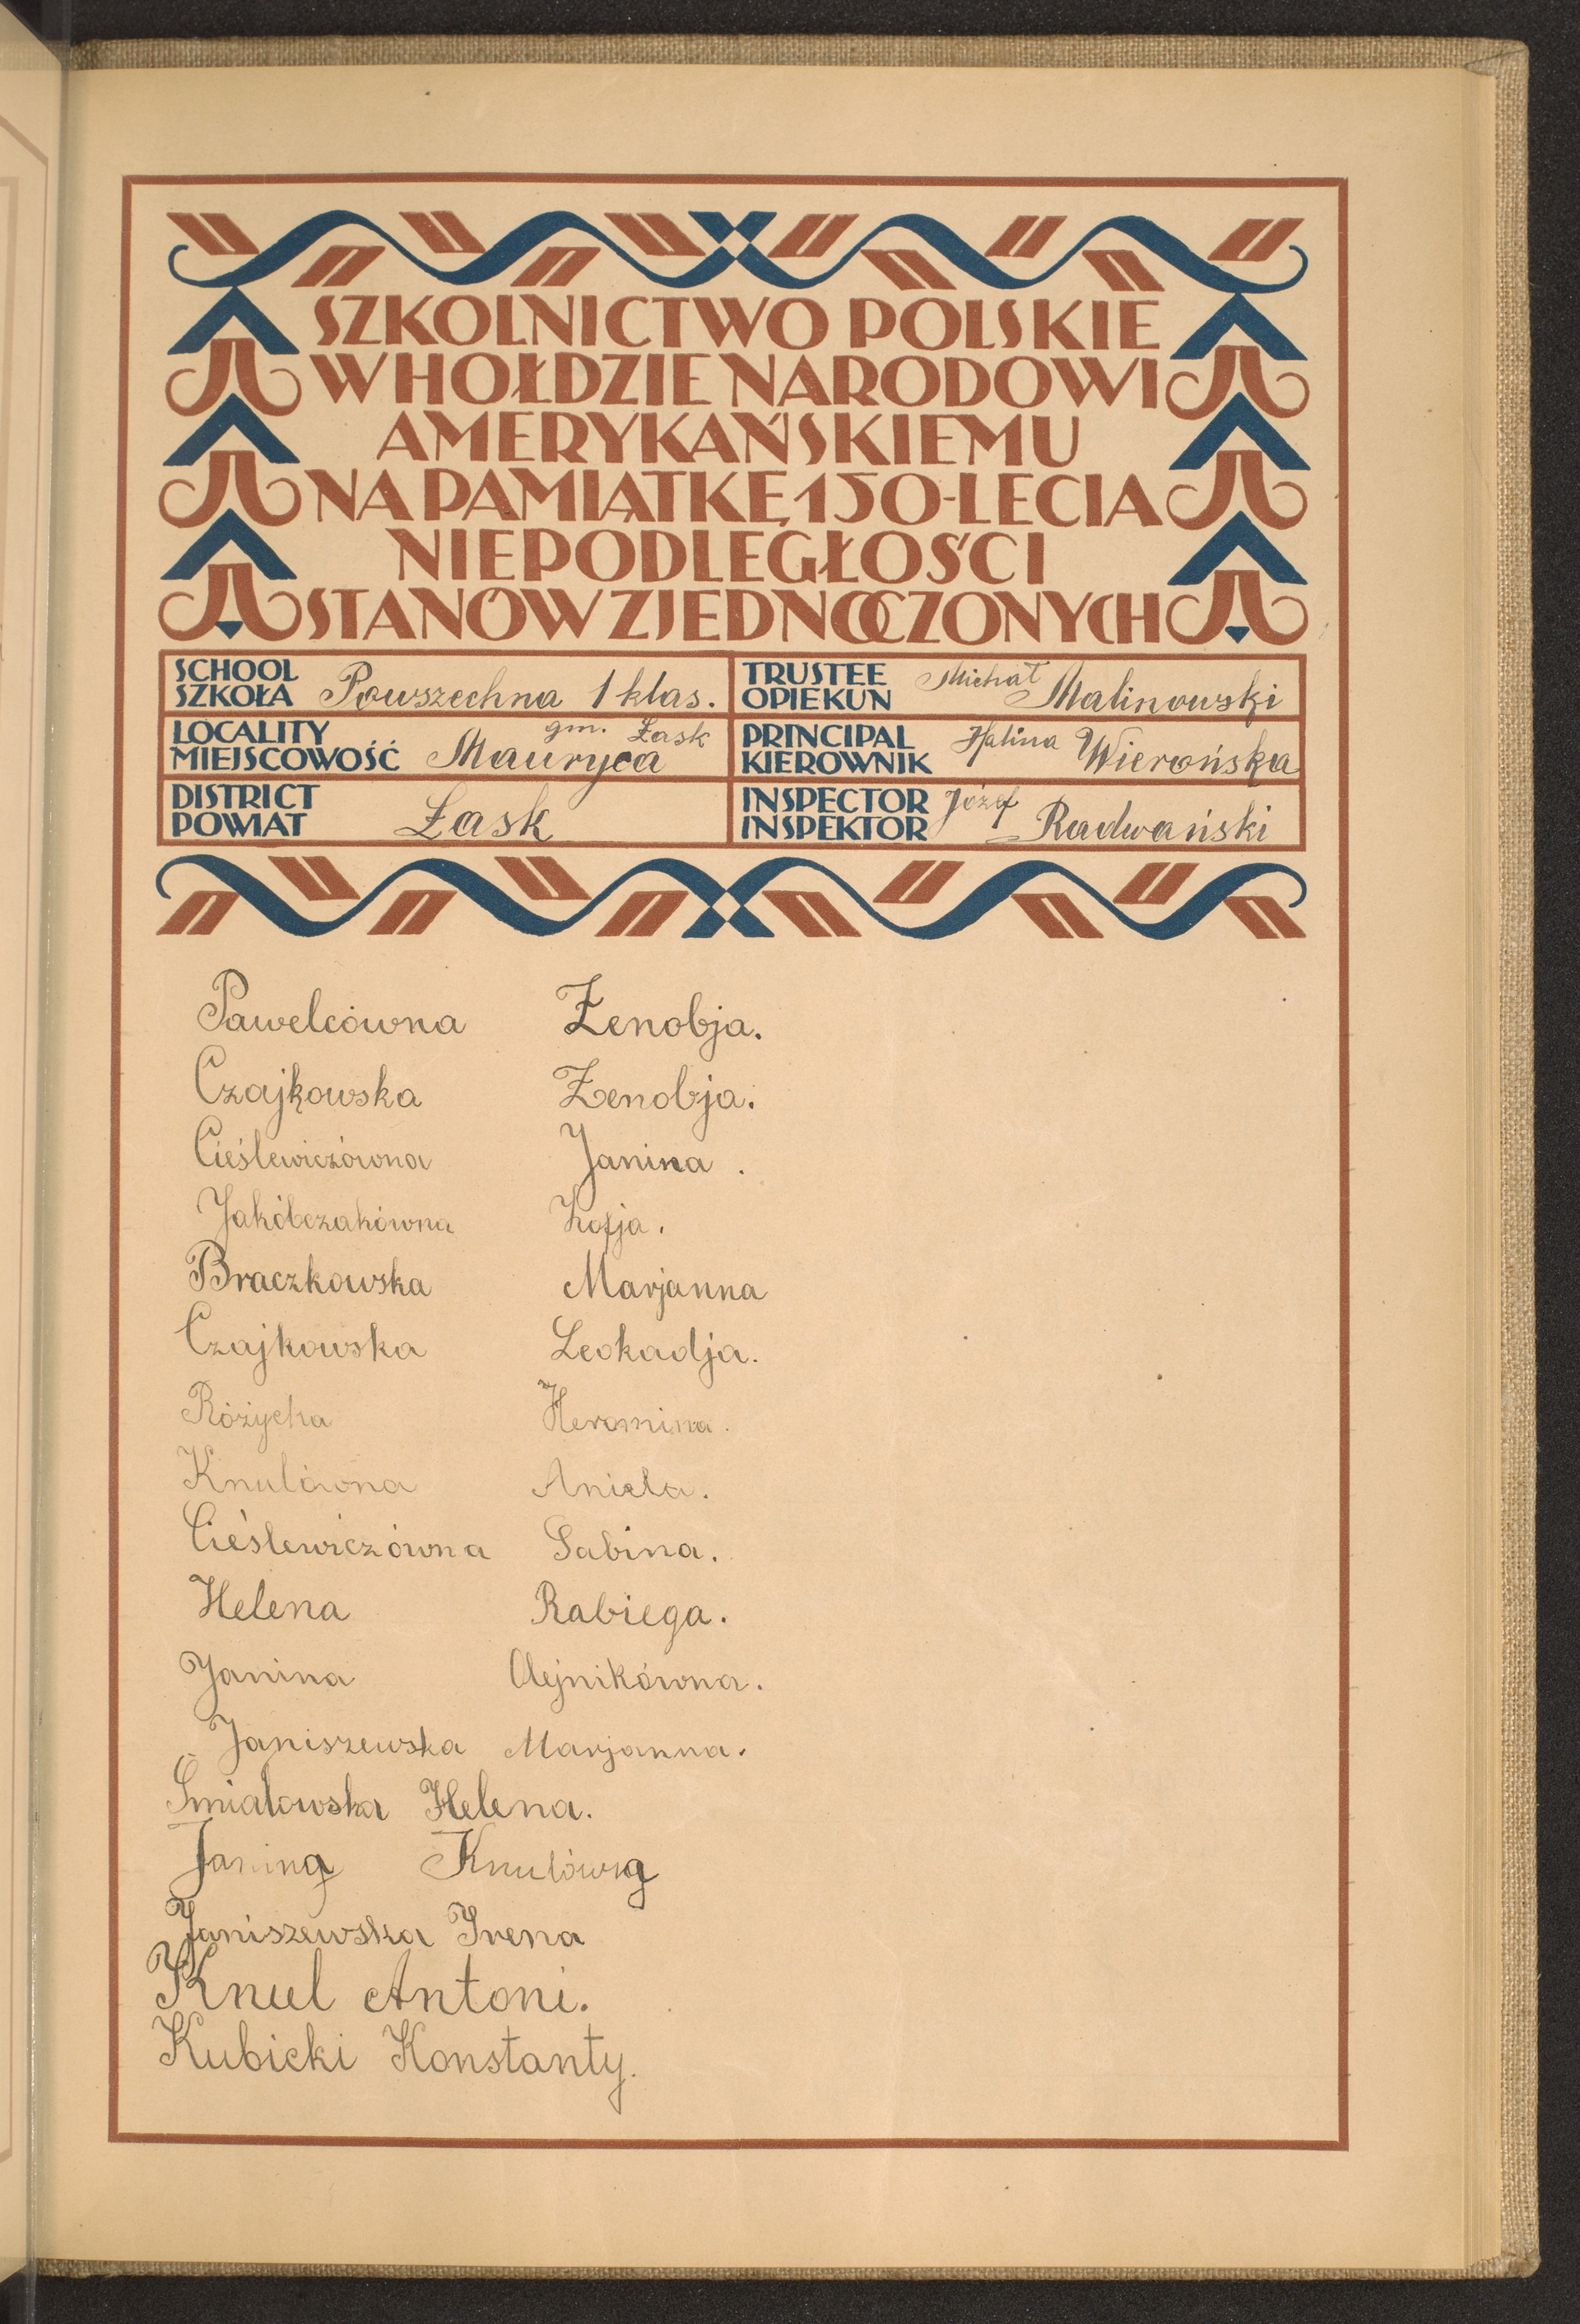 SZKOLNICTWO POLSKIE
W HOŁDZIE NARODOWI
AMERYKAŃSKIEMU
NA PAMIĄTKĘ 150-LECIA
NIEPODLEGŁOŚCI
STANÓW ZJEDNOCZONYCH
SCHOOL
SZKOŁA Powszechna 1 klas.
TRUSTEE
OPIEKUN Michał Malinowski
LOCALITY gm. Łask
MIEJSCOWOŚĆ Mauryca
PRINCIPAL
KIEROWNIK Halina Wierońska
DISTRICT
POWIAT Łask
INSPECTOR
INSPEKTOR Józef Radwański
Pawelcówna Zenobja.
Czajkowska Zenobja.
Cieślewiczówna Janina.
Jakóbczakówna Zofja.
Braczkowska Marjanna
Czajkowska Leokadja.
Różycka Heromina.
Knulówna Aniela.
Cieślewiczówna Sabina.
Helena Rabiega.
Janina Olejnikówna.
Janiszewska Marjanna.
Śmiałowska Helena.
Janina Knulówna
Janiszewska Irena
Knul Antoni.
Kubicki Konstanty.